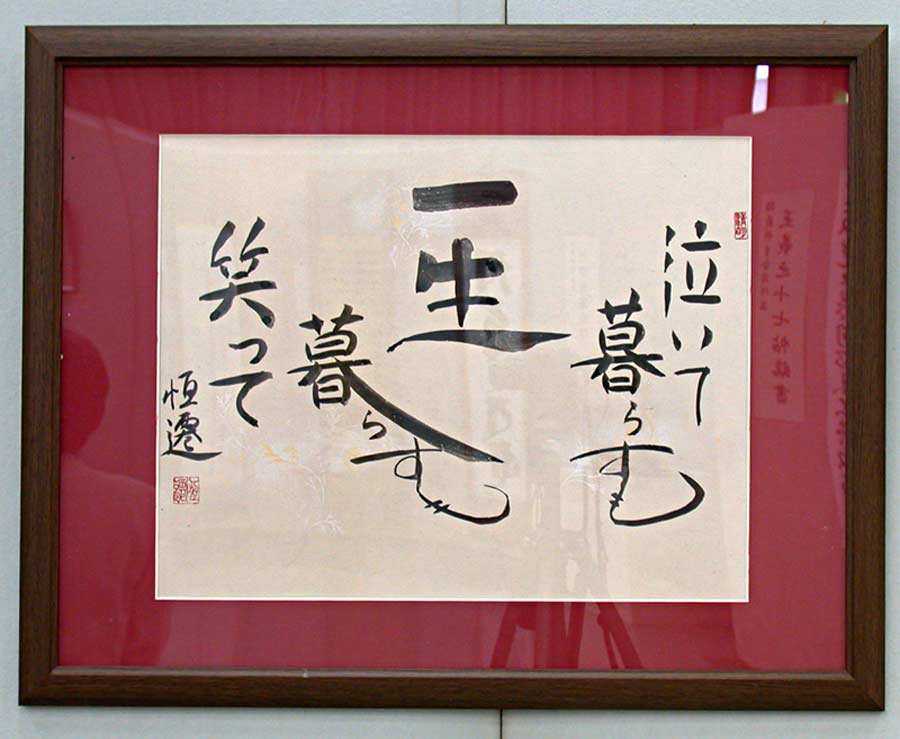 泣いて
暮らすも
一生
暮らすも
笑って
恒遷